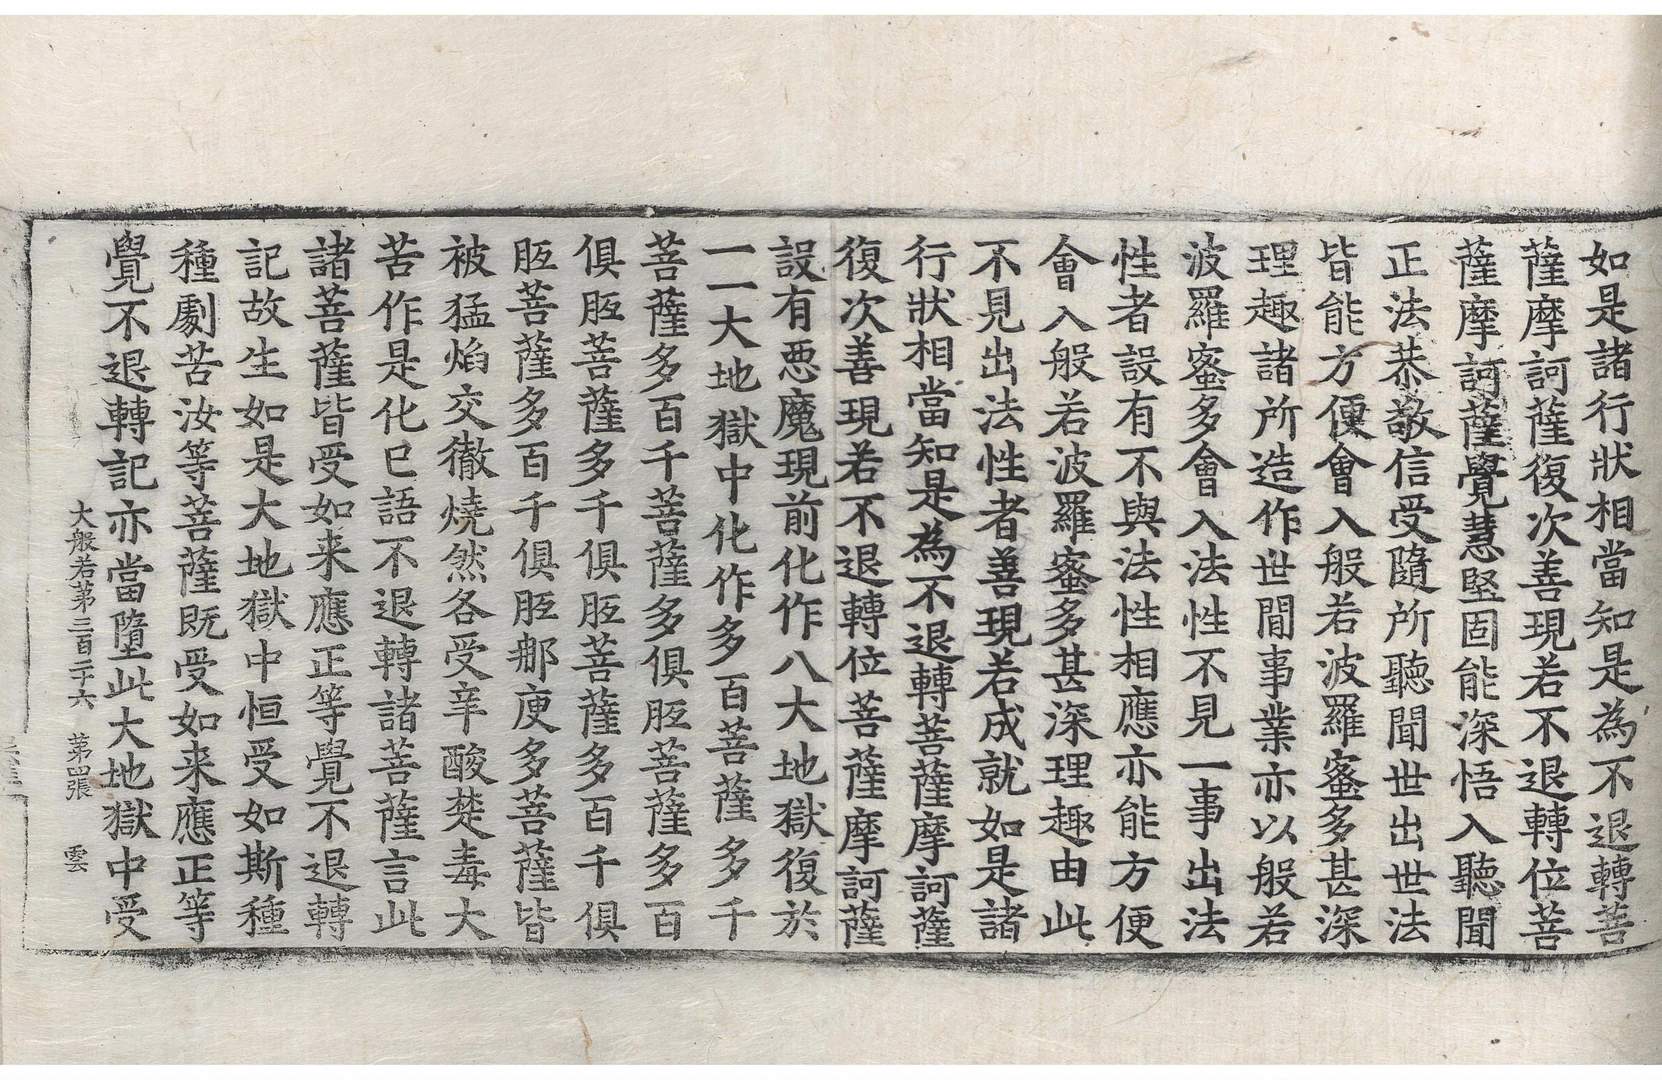 如是諸行狀相當知是為不退轉菩
薩摩訶薩復次善現若不退轉位菩
薩摩訶薩覺慧堅固能深悟入聽聞
正法恭敬信受隨所聽聞世出世法
皆能方便會入般若波羅蜜多甚深
理趣諸所造作世間事業亦以般若
波羅蜜多會入法性不見一事出法
性者設有不與法性相應亦能方便
會入般若波羅蜜多甚深理趣由此
不見出法性者善現若成就如是諸
行狀相當知是為不退轉菩薩摩訶薩
復次善現若不退轉位菩薩摩訶薩
設有惡魔現前化作八大地獄復於
一一大地獄中化作多百菩薩多千
菩薩多百千菩薩多俱胝菩薩多百
俱胝菩薩多千俱胝菩薩多百千俱
胝菩薩多百千俱胝那庾多菩薩皆
被猛焰交徹燒然各受辛酸楚毒大
苦作是化已語不退轉諸菩薩言此
諸菩薩皆受如来應正等覺不退轉
記故生如是大地獄中恒受如斯種
種劇苦汝等菩薩既受如来應正等
覺不退轉記亦當墮此大地獄中受
大般若第三百二十六 第四張 雲